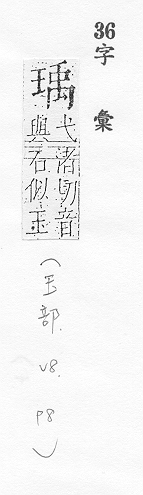 36字彙
瑀
弋渚切音
與石似玉
(玉部. V8. P8)